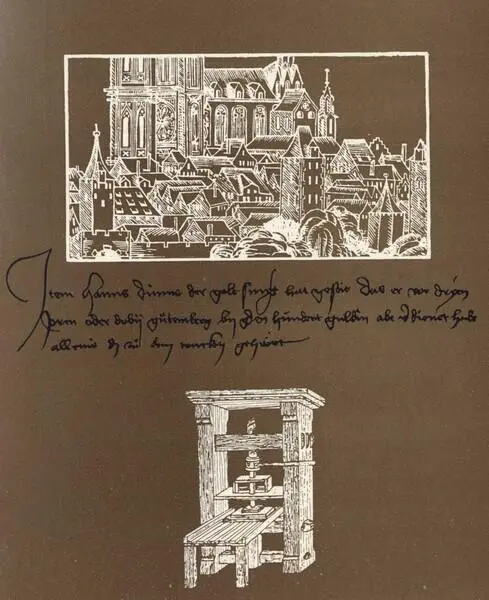 Item hanns dünne der goltsmyt hat geseit das er vor dryen
Joren oder doby gütemberg by den hündert guldin abe verdienet habe
alleine dz zü dem trucken gehöret